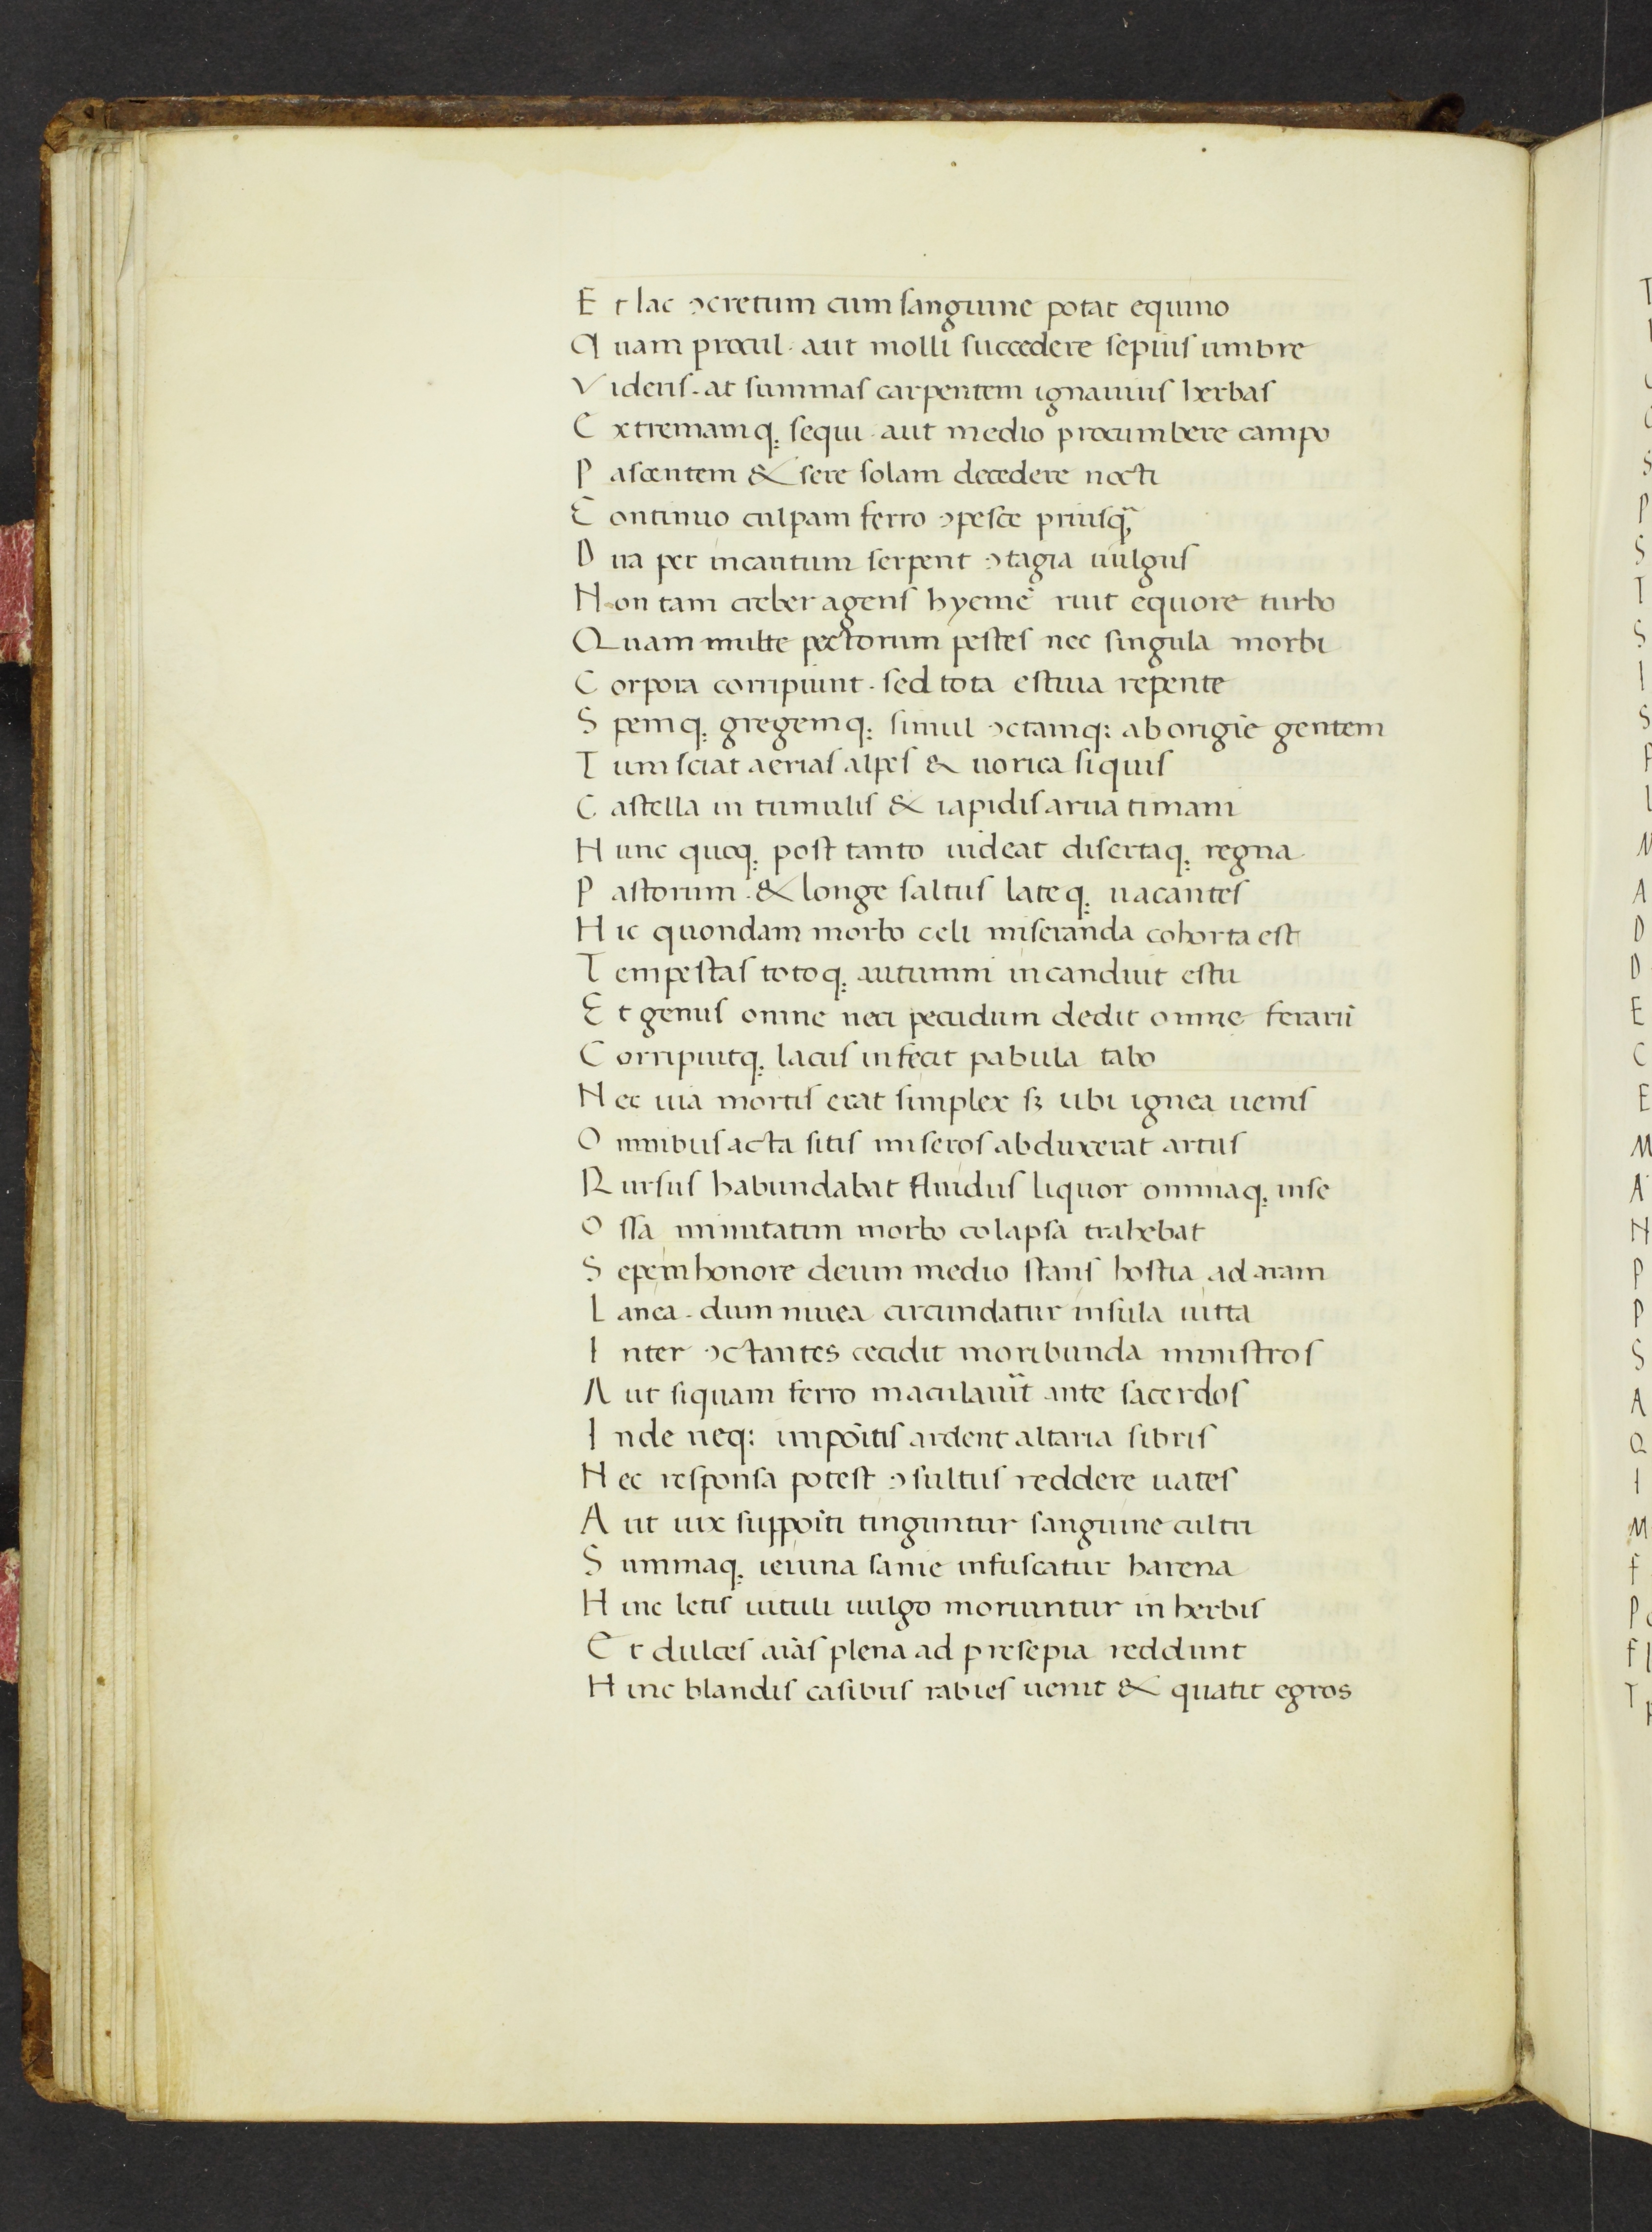 E t lac ꝯcretum cum sanguine potat equino
Q uam procul · aut molli succedere sepius umbre
V ideris · at summas carpentem ignauius herbas
E xtremamq; sequi · aut medio procumbere campo
P ascentem & sere solam decedere nocti
C ontinuo culpam ferro ꝯpesce priusq̃
D ira per incautum serpent ꝯtagia uulgus
N on tam creber agens hyemē ruit equore turbo
Q uam multe pectorum pestes nec singula morbi
C orpora corripiunt · sed tota estiua repente
S pemq; gregemq; simul ꝯctamq; ab origīe gentem
T um sciat aerias alpes & norica siquis
C astella in tumulis & iapidis arua timani
H unc quoq; post tanto uideat disertaq; regna
P astorum · & longe saltus lateq; uacantes
H ic quondam morbo celi miseranda cohorta est
T empestas totoq; autumni incanduit estu
E t genus omne neci pecudum dedit omne ferarū
C orripuitq; lacus infecit pabula tabo
N ec uia mortis erat simplex sꝫ ubi ignea uenis
O mnibus acta sitis miseros abduxerat artus
R ursus habundabat fluidus liquor omniaq; inse
O ssa minutatim morbo colapsa trahebat
S epem honore deum medio stans hostia ad aram
L anea · dum niuea circundatur insula uitta
I nter ꝯctantes cecidit moribunda ministros
A ut siquam ferro maculauīt ante sacerdos
I nde neq; impōitis ardent altaria sibris
N ec responsa potest ꝯsultus reddere uates
A ut uix suppōiti tinguntur sanguine cultri
S ummaq; ieiuna sanie infuscatur harena
H inc letis uituli uulgo moriuntur in herbis
E t dulces aīas plena ad presepia reddunt
H inc blandis casibus rabies uenit & quatit egros